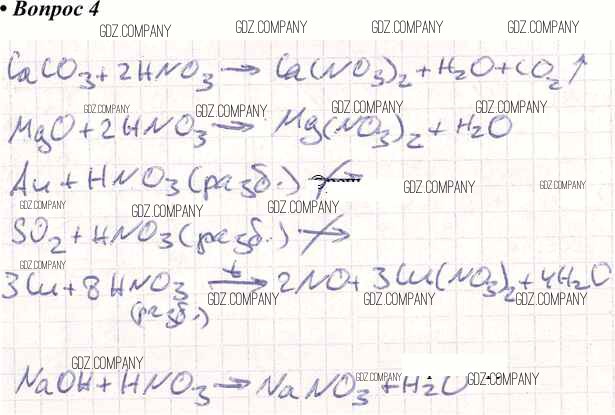 • Вопрос 4
GDZ.COMPANY GDZ.COMPANY GDZ.COMPANY GDZ.COMPANY
CaCO3 + 2HNO3 → Ca(NO3)2 + H2O + CO2↑
GDZ.COMPANY GDZ.COMPANY GDZ.COMPANY GDZ.COMPANY
MgO + 2HNO3 → Mg(NO3)2 + H2O
Au + HNO3 (разб.) ↛
GDZ.COMPANY GDZ.COMPANY
GDZ.COMPANY GDZ.COMPANY GDZ.COMPANY
SO2 + HNO3 (разб.) ↛
GDZ.COMPANY
3Cu + 8HNO3 (разб.) t→ 2NO + 3Cu(NO3)2 + 4H2O
GDZ.COMPANY GDZ.COMPANY GDZ.COMPANY
GDZ.COMPANY
NaOH + HNO3 → NaNO3 + H2O
GDZ.COMPANY GDZ.COMPANY